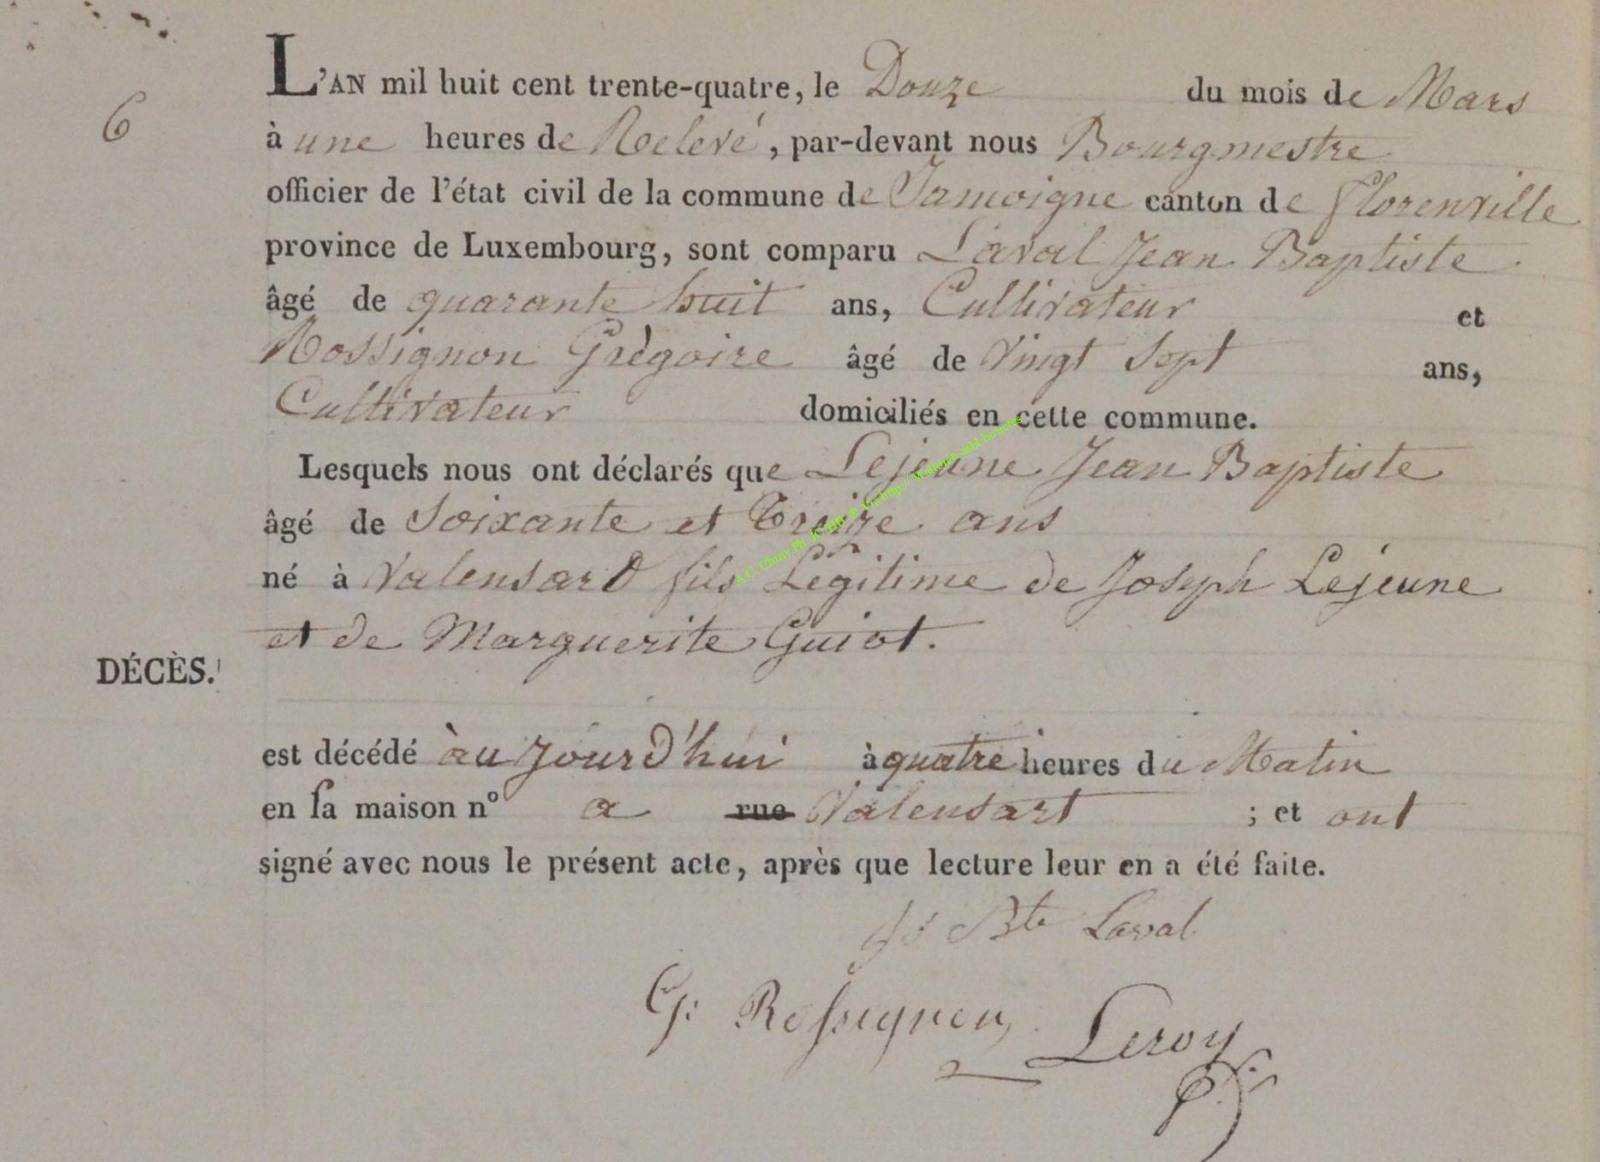 L'AN mil huit cent trente-quatre, le Douze du mois de Mars
6
à une heures de Relevé, par-devant nous Bourgmestre
officier de l'état civil de la commune de Jamoigne canton de Florenville
province de Luxembourg, sont comparu Laval Jean Baptiste
âgé de quarante huit ans, Cultivateur et
Rossignon Grègoire âgé de Vingt Sept ans,
Cultivateur domiciliés en cette commune.
Lesquels nous ont déclarés que Lejeune Jean Baptiste
âgé de Soixante et Treize ans
né à Valensard fils Légitime de Joseph Lejeune
et de Marguerite Guiot.
DÉCÈS.
est décédé àujourd'hui à quatre heures du Matin
en sa maison n° a rue Valensart ; et ont
signé avec nous le présent acte, après que lecture leur en a été faite.
Bte Laval
G: Rossignon
Leroy